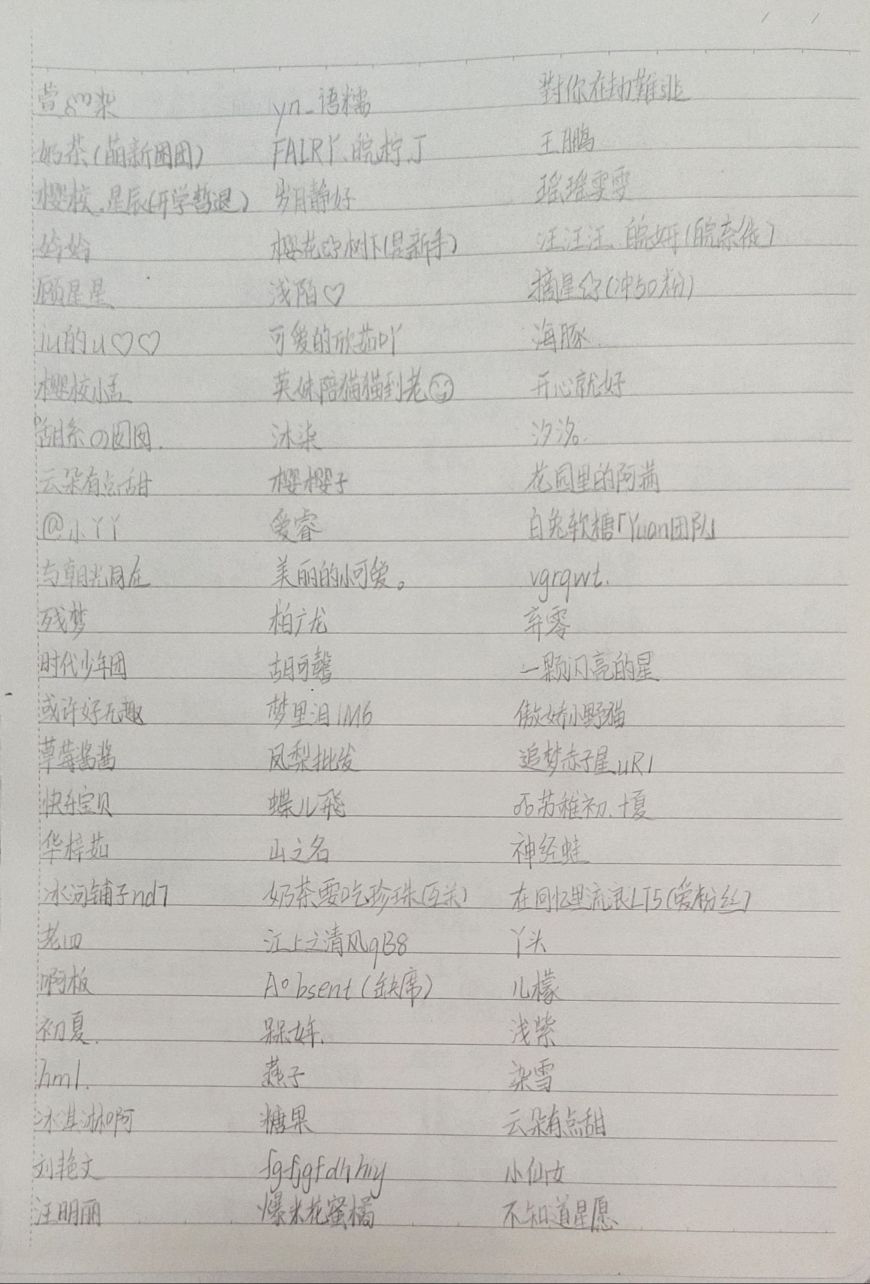 yn_语糯 對你在劫難逃
奶茶(萌新困困) FAIRY、皖柠J 王鹏
樱校.星辰(开学暂退) 岁月静好 瑶瑶雯雯
姈姈 樱花的树下(是新手) 汪汪汪、皖妍(皖柰徒)
顾星星 浅陌♡ 摘星(冲50粉)
iu的u♡♡ 可爱的欣茹吖 海豚.
樱校小孟 英妹陪猫猫到老 开心就好
胡糸の圈圈. 沐柒 汐洺.
云朵有点甜 樱樱子 花园里的阿满
@小丫丫 爱睿 白兔软糖「Yuan团队」
与朝光同在 美丽的小可爱。 vgrqwt.
残梦 柏广龙 弃零
时代少年团 胡可馨 一颗闪亮的星
或许好无趣 梦里泪1M6 傲娇小野猫
草莓酱酱 凤梨批发 追梦赤子星UR1
快乐宝贝 蝶儿飛 苏稚初.十夏
华梓茹 山之名 神经蛙
冰河铺子nd7 奶茶要吃珍珠(互关) 在回忆里流浪LT5(爱粉丝)
老四 江上之清风qB8 丫头
啊板 A°bsent(缺席) 儿檬
初夏. 槑姩. 浅紫
hml. 燕子 染雪
冰淇淋啊 糖果 云朵有点甜
刘艳文 fgfjgfdhhiy 小仙女
汪明丽 爆米花蜜橘 不知道星愿